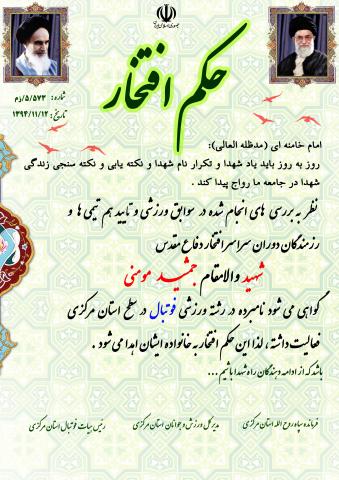 جمهوری اسلامی ایران
شماره: ۵/۵۷۳/ذم
تاریخ: ۱۳۹۴/۱۱/۱۲
حکم افتخار
امام خامنه ای (مدظله العالی):
روز به روز باید یاد شهدا و تکرار نام شهدا و نکته یابی و نکته سنجی زندگی
شهدا در جامعه ما رواج پیدا کند .
نظر به بررسی های انجام شده در سوابق ورزشی و تایید هم تیمی ها و
رزمندگان دوران سراسر افتخار دفاع مقدس
شهید والامقام جمشید مومنی
گواهی می شود نامبرده در رشته ورزشی فوتبال در سطح استان مرکزی
فعالیت داشته ، لذا این حکم افتخار به خانواده ایشان اهدا می شود .
باشد که از ادامه دهندگان راه شهدا باشیم...
فرمانده سپاه روح الله استان مرکزی
مدیر کل ورزش و جوانان استان مرکزی
رئیس هیات فوتبال استان مرکزی